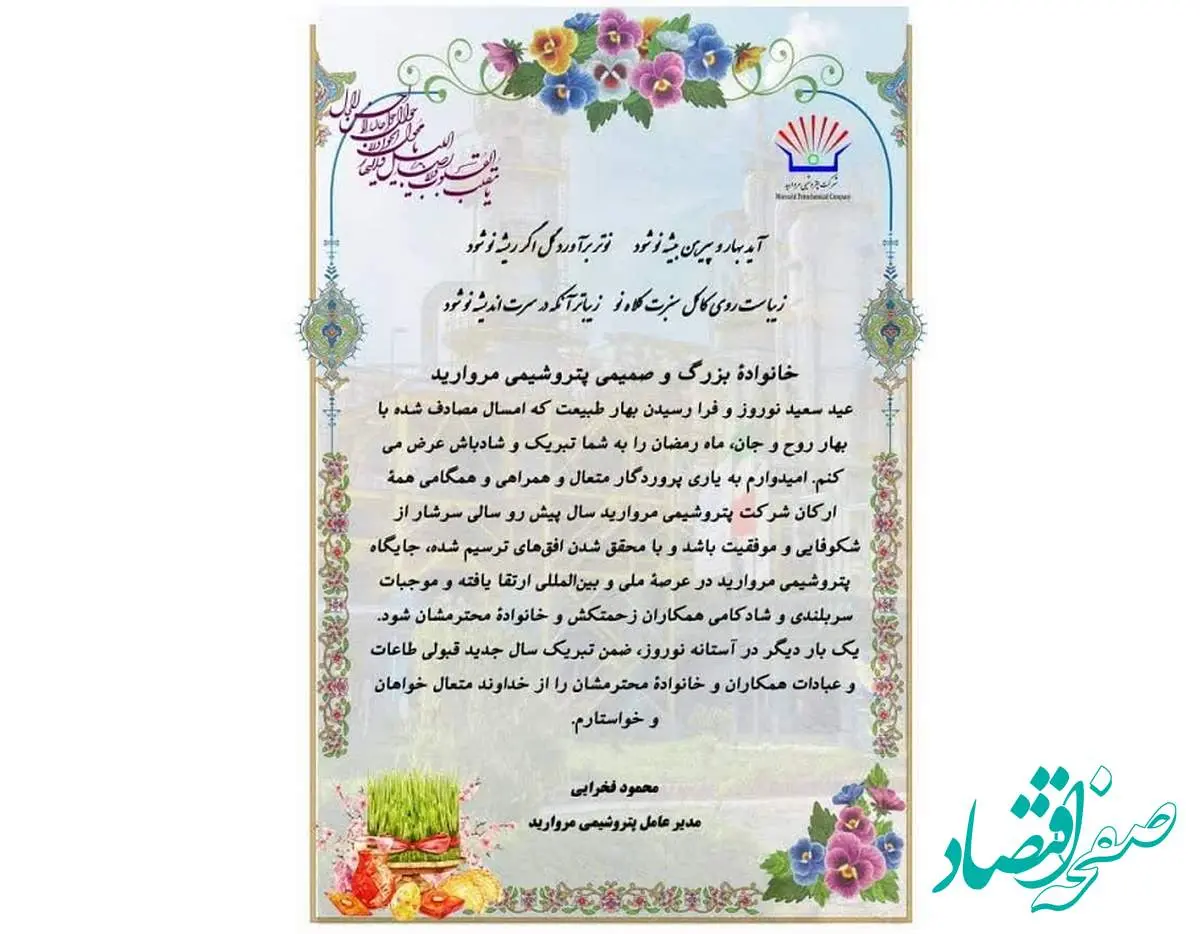 یا مقلب القلوب و الابصار
یا مدبر اللیل و النهار
یا محول الحول و الاحوال
حول حالنا الی احسن الحال
شرکت پتروشیمی مروارید
Morvarid Petrochemical Company
آید بهار و پیرهن بیشه نو شود نوتر برآورد گل اگر ریشه نو شود
زیباست روی کاکل سبزت کلاه نو زیباتر آنکه در سرت اندیشه نو شود
خانوادۀ بزرگ و صمیمی پتروشیمی مروارید
عید سعید نوروز و فرا رسیدن بهار طبیعت که امسال مصادف شده با
بهار روح و جان، ماه رمضان را به شما تبریک و شادباش عرض می
کنم. امیدوارم به یاری پروردگار متعال و همراهی و همگامی همۀ
ارکان شرکت پتروشیمی مروارید سال پیش رو سالی سرشار از
شکوفایی و موفقیت باشد و با محقق شدن افق‌های ترسیم شده، جایگاه
پتروشیمی مروارید در عرصۀ ملی و بین‌المللی ارتقا یافته و موجبات
سربلندی و شادکامی همکاران زحمتکش و خانوادۀ محترمشان شود.
یک بار دیگر در آستانه نوروز، ضمن تبریک سال جدید قبولی طاعات
و عبادات همکاران و خانوادۀ محترمشان را از خداوند متعال خواهان
و خواستارم.
محمود فخرایی
مدیر عامل پتروشیمی مروارید
صفحه اقتصاد